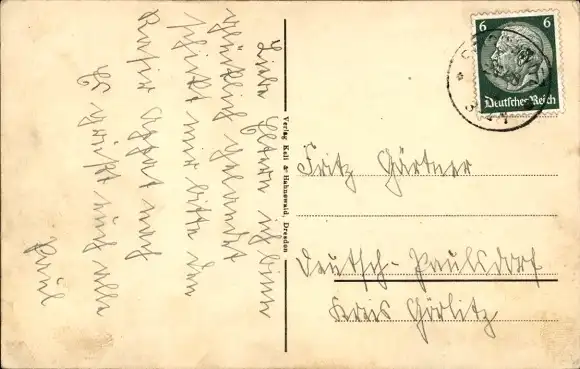 Liebe Eltern ich binn
glücklich gelandet
schickt mir bitte den
Rasier Apparat nach
Es grüßt euch alle
Paul
Verlag Keil & Hahnewald, Dresden
6 6
Deutsches Reich
Fritz Gärtner
Deutsch-Paulsdorf
Kreis Görlitz